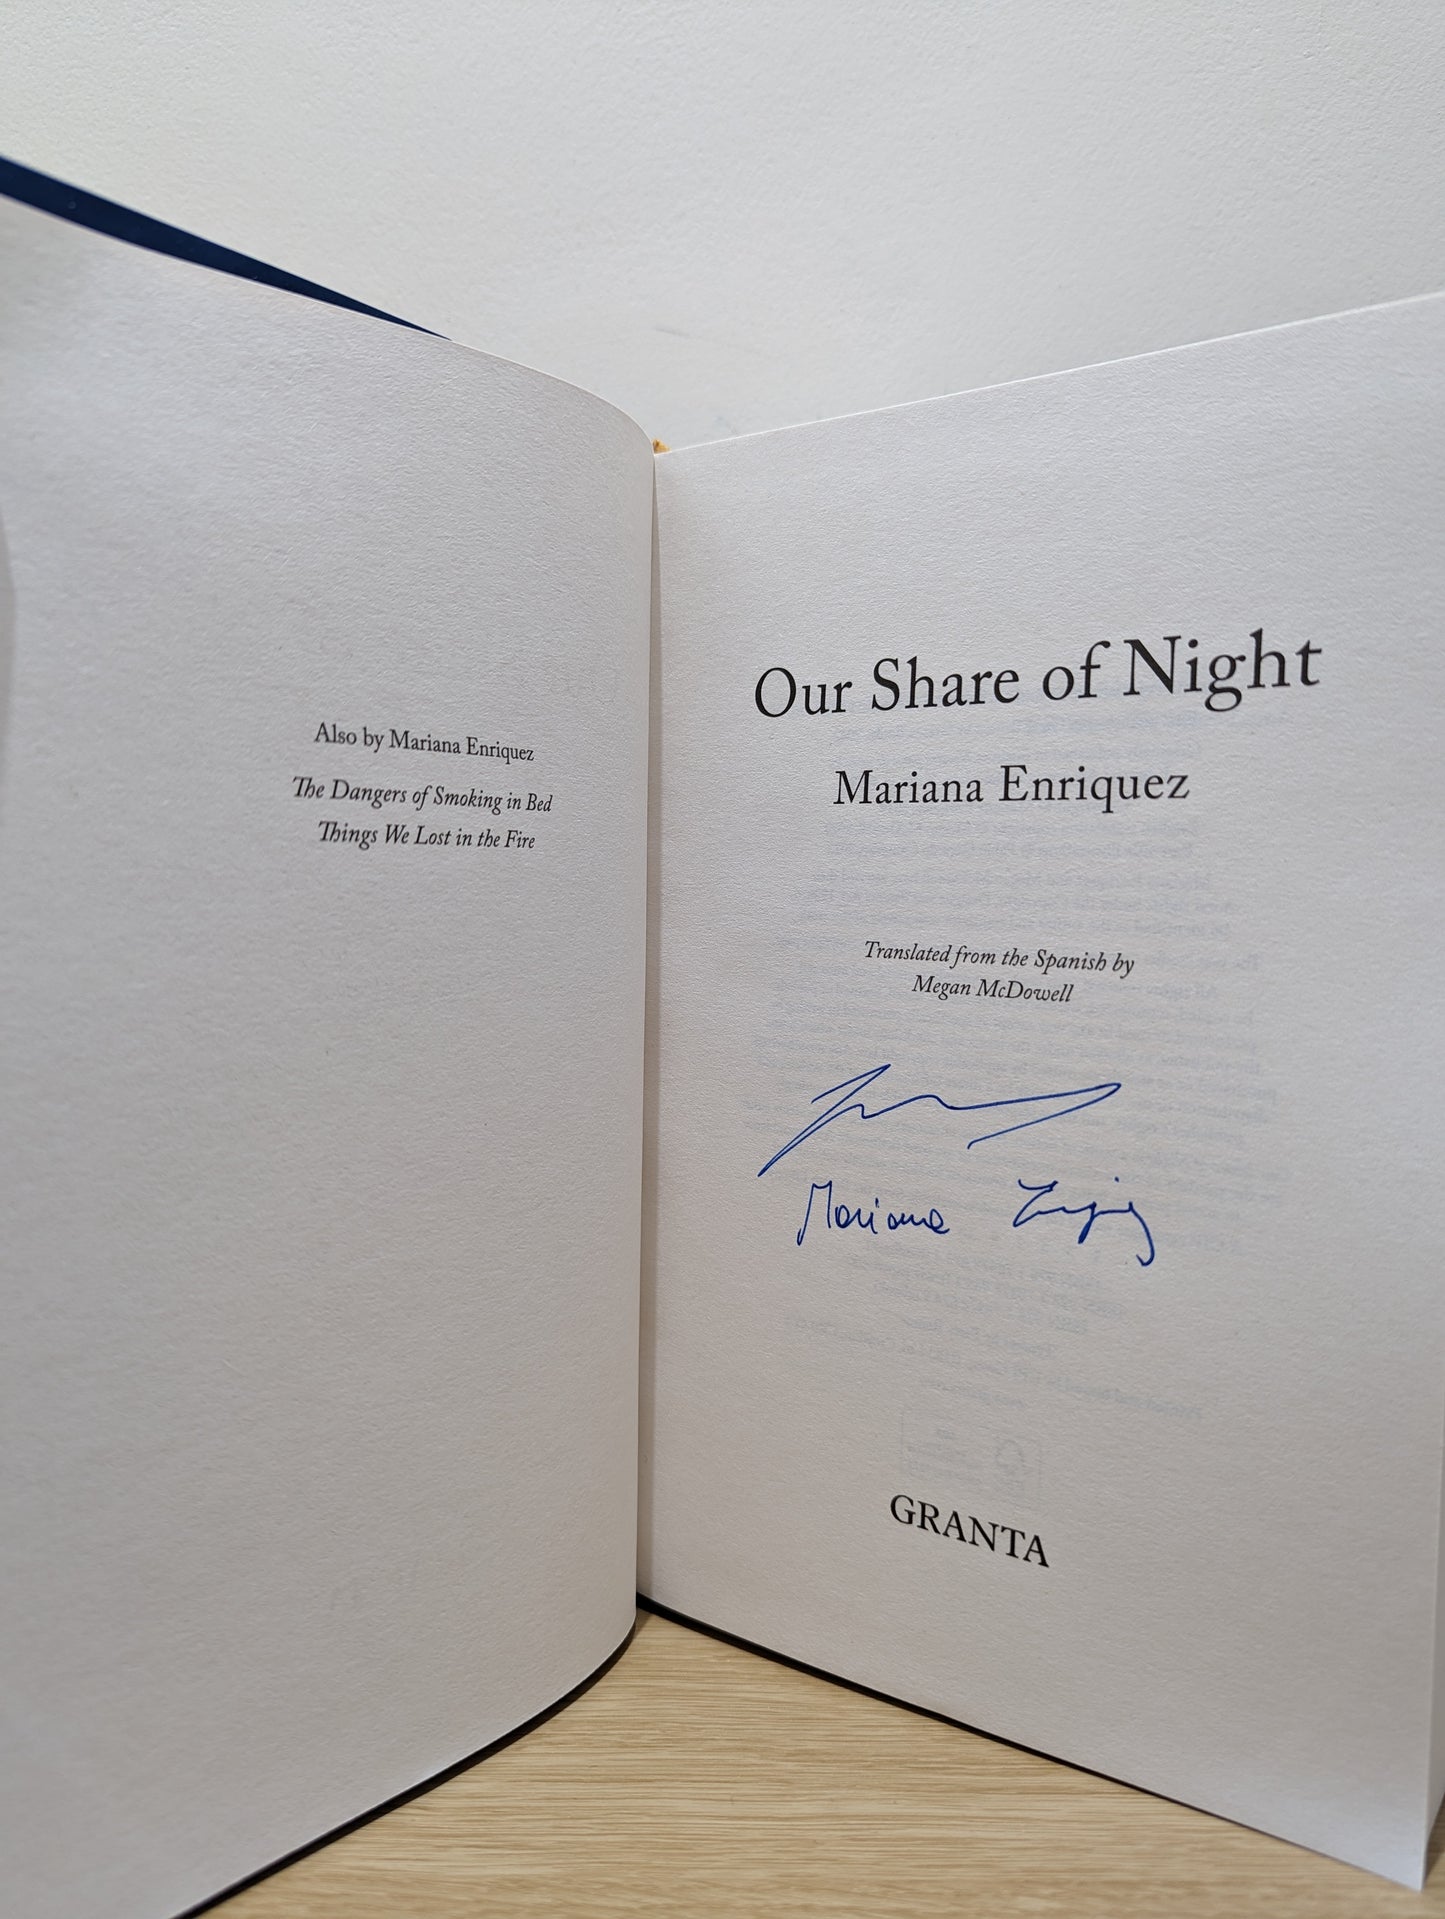 Also by Mariana Enriquez
The Dangers of Smoking in Bed
Things We Lost in the Fire
Our Share of Night
Mariana Enriquez
Translated from the Spanish by
Megan McDowell
Mariana
GRANTA